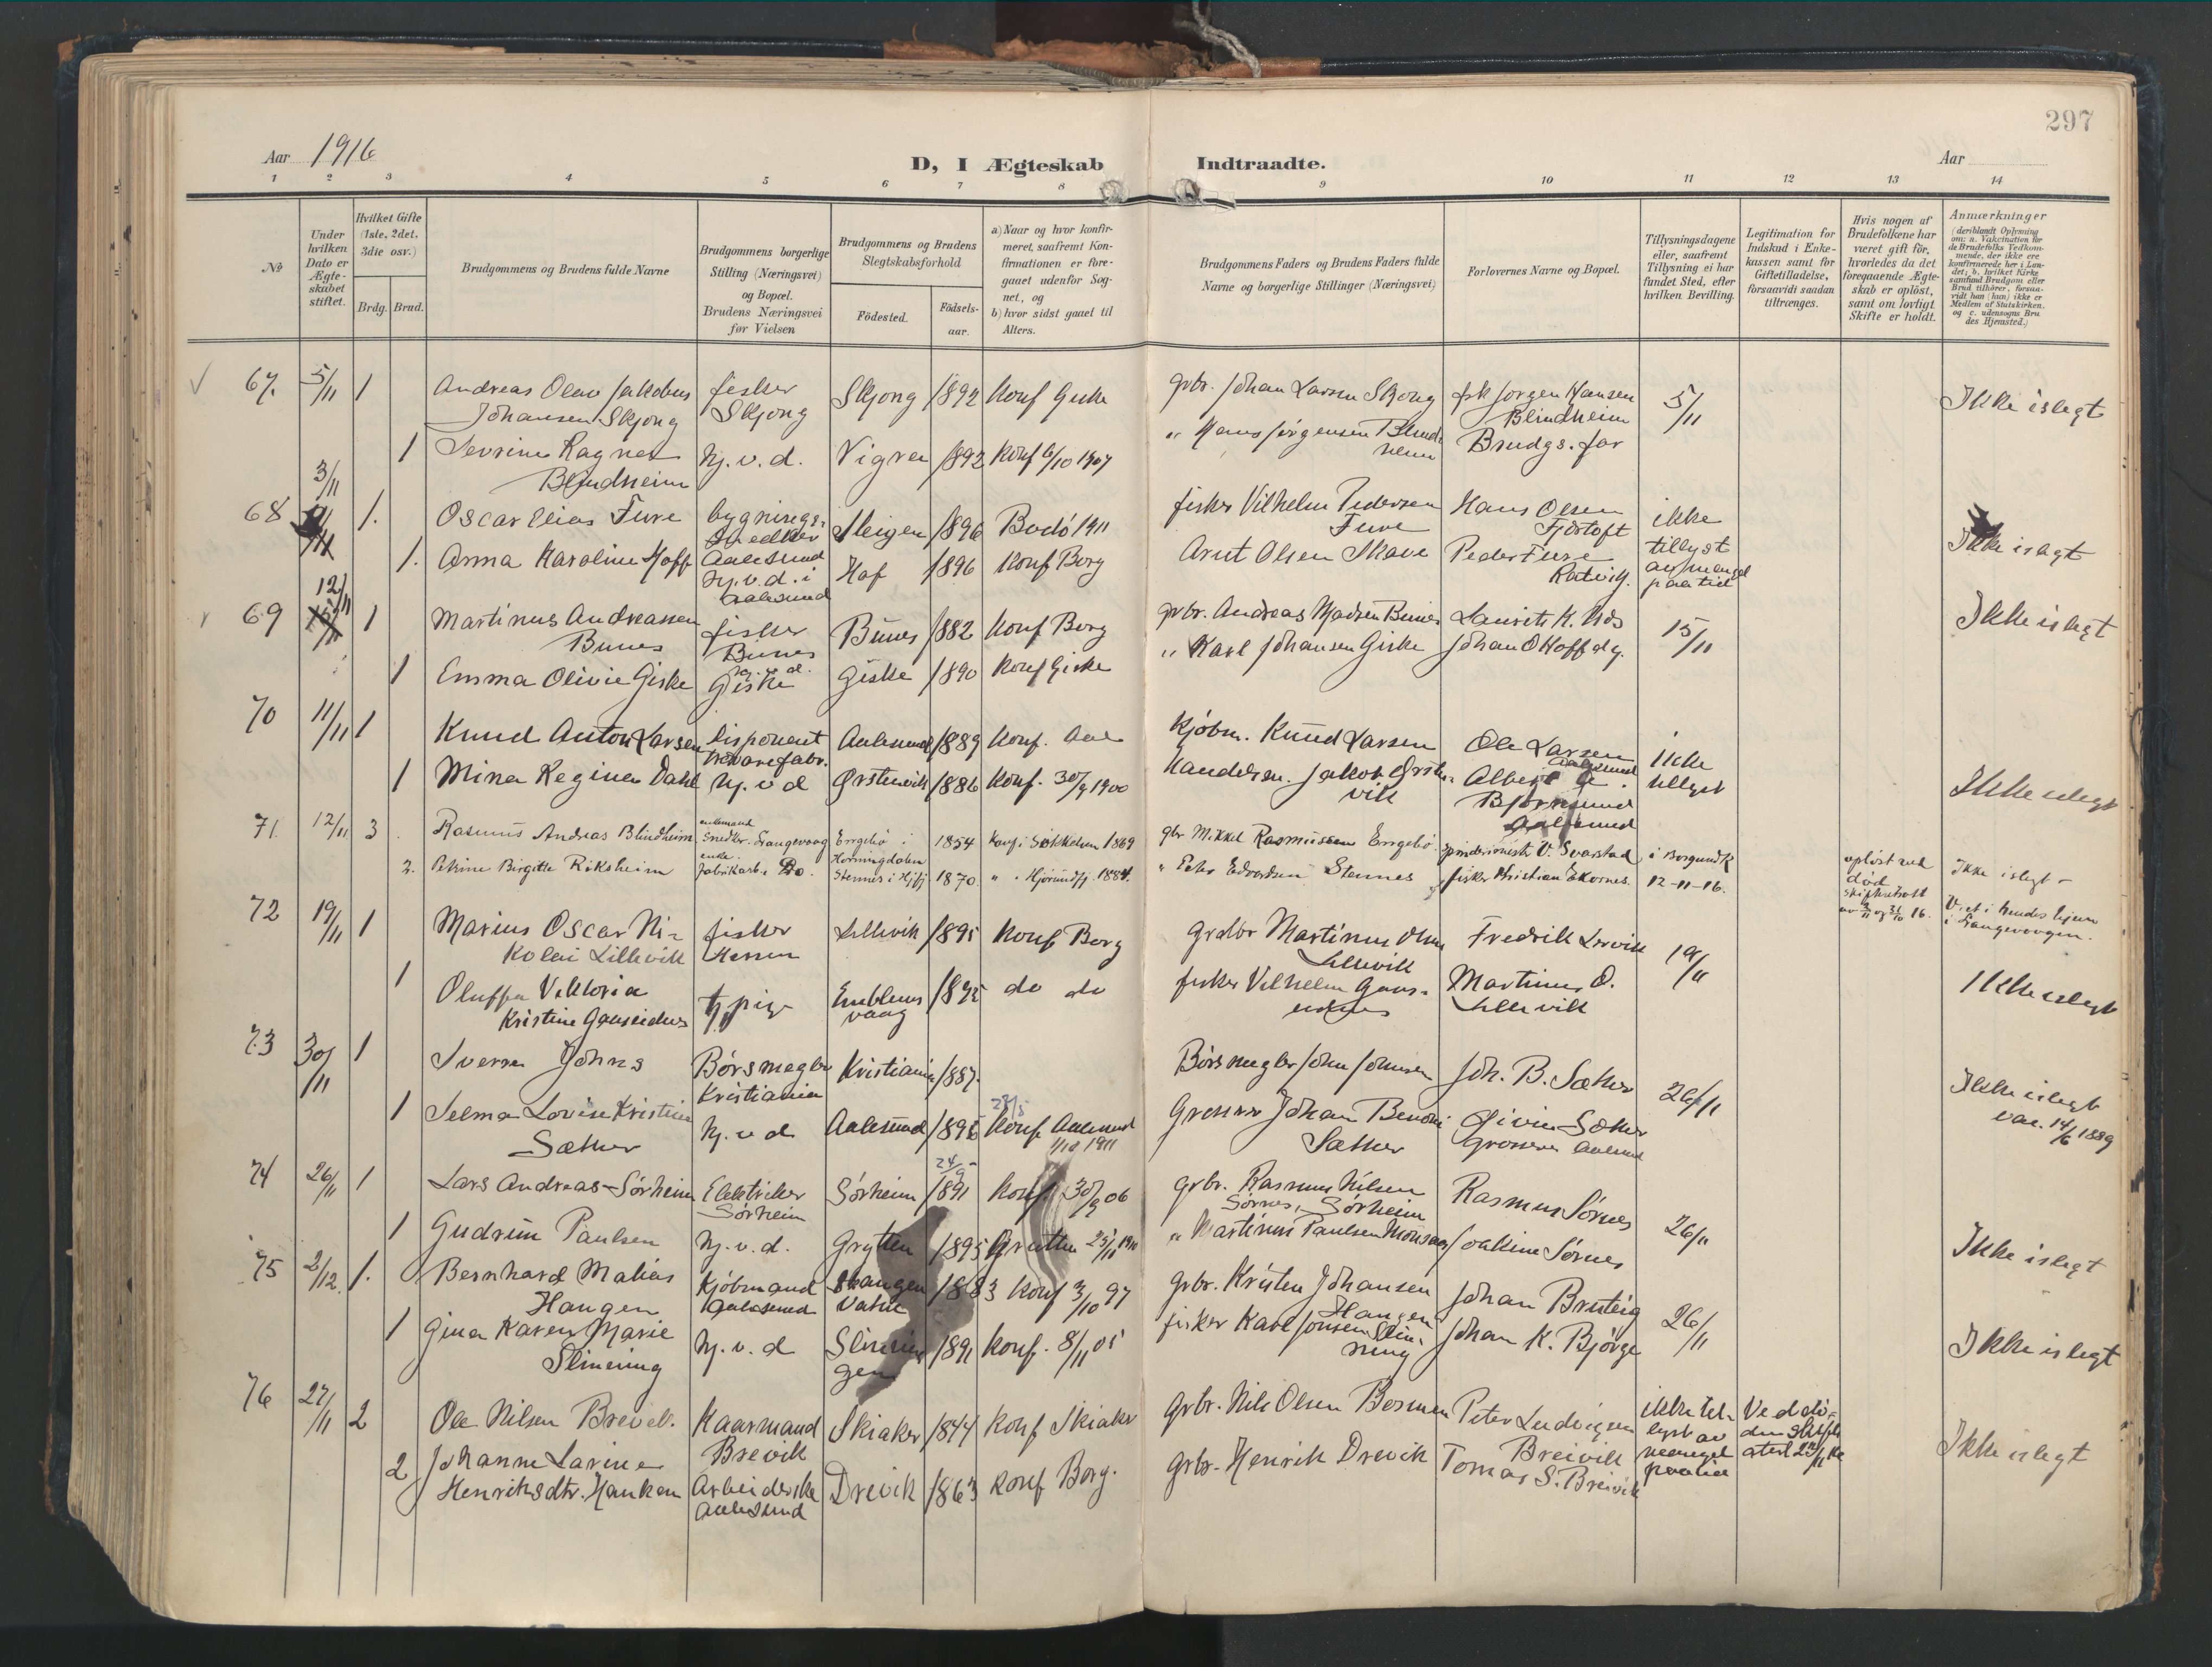 297
Aar 1916
D, I Ægteskab Indtraadte.
Aar
1 2 3 4 5 6 7 8 9 10 11 12 13 14
No
Under hvilken Dato er Ægteskabet stiftet.
Hvilket Gifte (1ste, 2det, 3die osv.)
Brdg. Brud.
Brudgommens og Brudens fulde Navne
Brudgommens borgerlige Stilling (Næringsvei) og Bopæl. Brudens Næringsvei før Vielsen
Brudgommens og Brudens Slegtskabsforhold
Fødested. Fødselsaar.
a) Naar og hvor konfirmeret, saafremt Konfirmationen er foregaaet udenfor Sognet, og
b) hvor sidst gaaet til Alters.
Brudgommens Faders og Brudens Faders fulde Navne og borgerlige Stillinger (Næringsvei)
Forlovernes Navne og Bopæl.
Tillysningsdagene eller, saafremt Tillysning ei har fundet Sted, efter hvilken Bevilling.
Legitimation for Indskud i Enkekassen samt for Giftetilladelse, forsaavidt saadan tiltrænges.
Hvis nogen af Brudefolkene har været gift før, hvorledes da det foregaaende Ægteskab er opløst, samt om lovligt Skifte er holdt.
Anmærkninger (deriblandt Oplysning om: a. Vakcination for de Brudefolks Vedkommende, der ikke ere konfirmerede her i Landet; b. hvilket Kirkesamfund Brudgom eller Brud tilhører, forsaavidt han (hun) ikke er Medlem af Statskirken. og c. udensogns Brudes Hjemsted.)
67. 5/11 1 Andreas Olav Jakobus fisker Skjong 1892 Konf Giske gbr. Johan Larsen Skjong fsk Jørgen Hansen 5/11 Ikke islegt
Johansen Skjong Skjong Blindheim
1 Sevrine Ragna hj.v.d. Vigra 1892 Konf 6/10 1907 " Hans Jørgensen Blindheim Brudgs. far
Blindheim
68 3/11 1. Oscar Elias Fure bygnings- Steigen 1896 Bodö 1911 fisker Vilhelm Pedersen Hans Olsen ikke Ikke islegt
snedker Fure Fjørtoft tillyst
1. Anna Karoline Hoff Aalesund Hof 1896 Konf Borg Arnt Olsen Skave Peder Fure av mangel
hj.v.d. i paa tid
Aalesund
69 12/11 1 Martinus Andreassen fisker Bunes 1882 Konf Borg gbr. Andreas Madsen Bunes Laurits K. 15/11 Ikke islegt
Bunes Bunes
1 Emma Olivie Giske hj.v.d. Giske 1890 Konf Giske " Karl Johansen Giske Johan O Hoff
Giske
70 11/11 1 Knud Anton Larsen disponent Aalesund 1889 Konf. Aal Kjøbm. Knud Larsen Ole Larsen Ikke Ikke islegt
trevarefabr. Aalesund tillyst
1 Mina Regine Dahl hj.v.d Ørstenvik 1886 Konf. 30/9 1900 Handelsm. Jakob Ørstenvik Albert
Bjørnsund
Aalesund
71. 12/11 3 Rasmus Andreas Blindheim enkemand Errgebø i 1854 Konf i 1869 gbr Mikkel Rasmussen Errgebø spinderimestr O. Svarstad i Borgund K opløst ved Ikke islegt -
Snedker. Langevaag Horningdalen død
2. Petrine Birgitte Riksheim enke. Stennes i Hjfj 1870 " Hjørundfj. 1884. " Peter Edvardsen Stennes fisker Kristian Ekornes 12-11-16. skifteattest Viet i hendes hjem
fabrikarb. Do. 16. i Langevaagen.
72 19/11 1 Marius Oscar Ni- fisker Lillevik 1895 Konf Borg gbr Martinus Olsen Fredrik Lorvik 19/11 Ikke islegt
kolai Lillevik Hessen Lillevik
1 Oluffa Viktoria tj pige Emblems 1895 do do fisker Vilhelm Martinus O.
Kristine Gaaseidnes vaag Lillevik
73 30/11 1 Sverre Johns Børsmegler Kristiania 1887. Børsmegler John Johnsen Joh. B. Sæther 26/11 Ikke islegt
Kristiania vac. 14/6 1889
1 Selma Lovise Kristine hj.v.d Aalesund 1895 Konf Aalesund Grosserer Johan Bendni Oivin Sæther
Sæther 1/10 1911 Sæther Grosserer Aalesund
74 26/11 1 Lars Andreas Sörheim Elektriker Sörheim 24/9 1891 Konf 30/9 06 gbr. Rasmus Nilsen Rasmus Sörnes 26/11 Ikke islegt
Sörheim Sörnes, Sörheim
1 Gudrun Paulsen hj.v.d. Grytten 1895 Grytten 25/11 1911 " Martinus Paulsen Joakim Sörnes
75 2/12. 1. Bernhard Matias Kjøbmand Haugen 1883 Konf 3/10 97 gbr. Kristen Johansen Johan Brusteig 26/11 Ikke islegt
Haugen Aalesund Vatne Haugen
1 Gina Karen Marie hj.v.d Slinnin 1891 Konf. 8/11 05 fisker Karl Jonsen Slinning Johan K. Bjørge
Slinning gen
76 27/11 2 Ole Nilsen Brevik. Kaarmand Skiaker 1844 Konf Skiaker gbr. Nils Olsen Peter Ludvigsen ikke til- Ved dö- Ikke islegt
Brevik Breivik lyst av den Skifte
2 Johanne Lavine Arbeiderske Dreivik 1863 Konf Borg. gbr. Henrik Drevik Tomas S. Breivik mangel attest
Henriksdtr. Hanken Aalesund paa tid